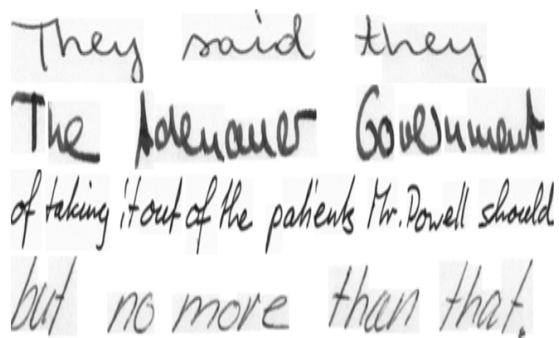 They said they
The Adenauer Government
of taking it out of the patients Mr. Powell should
but no more than that.